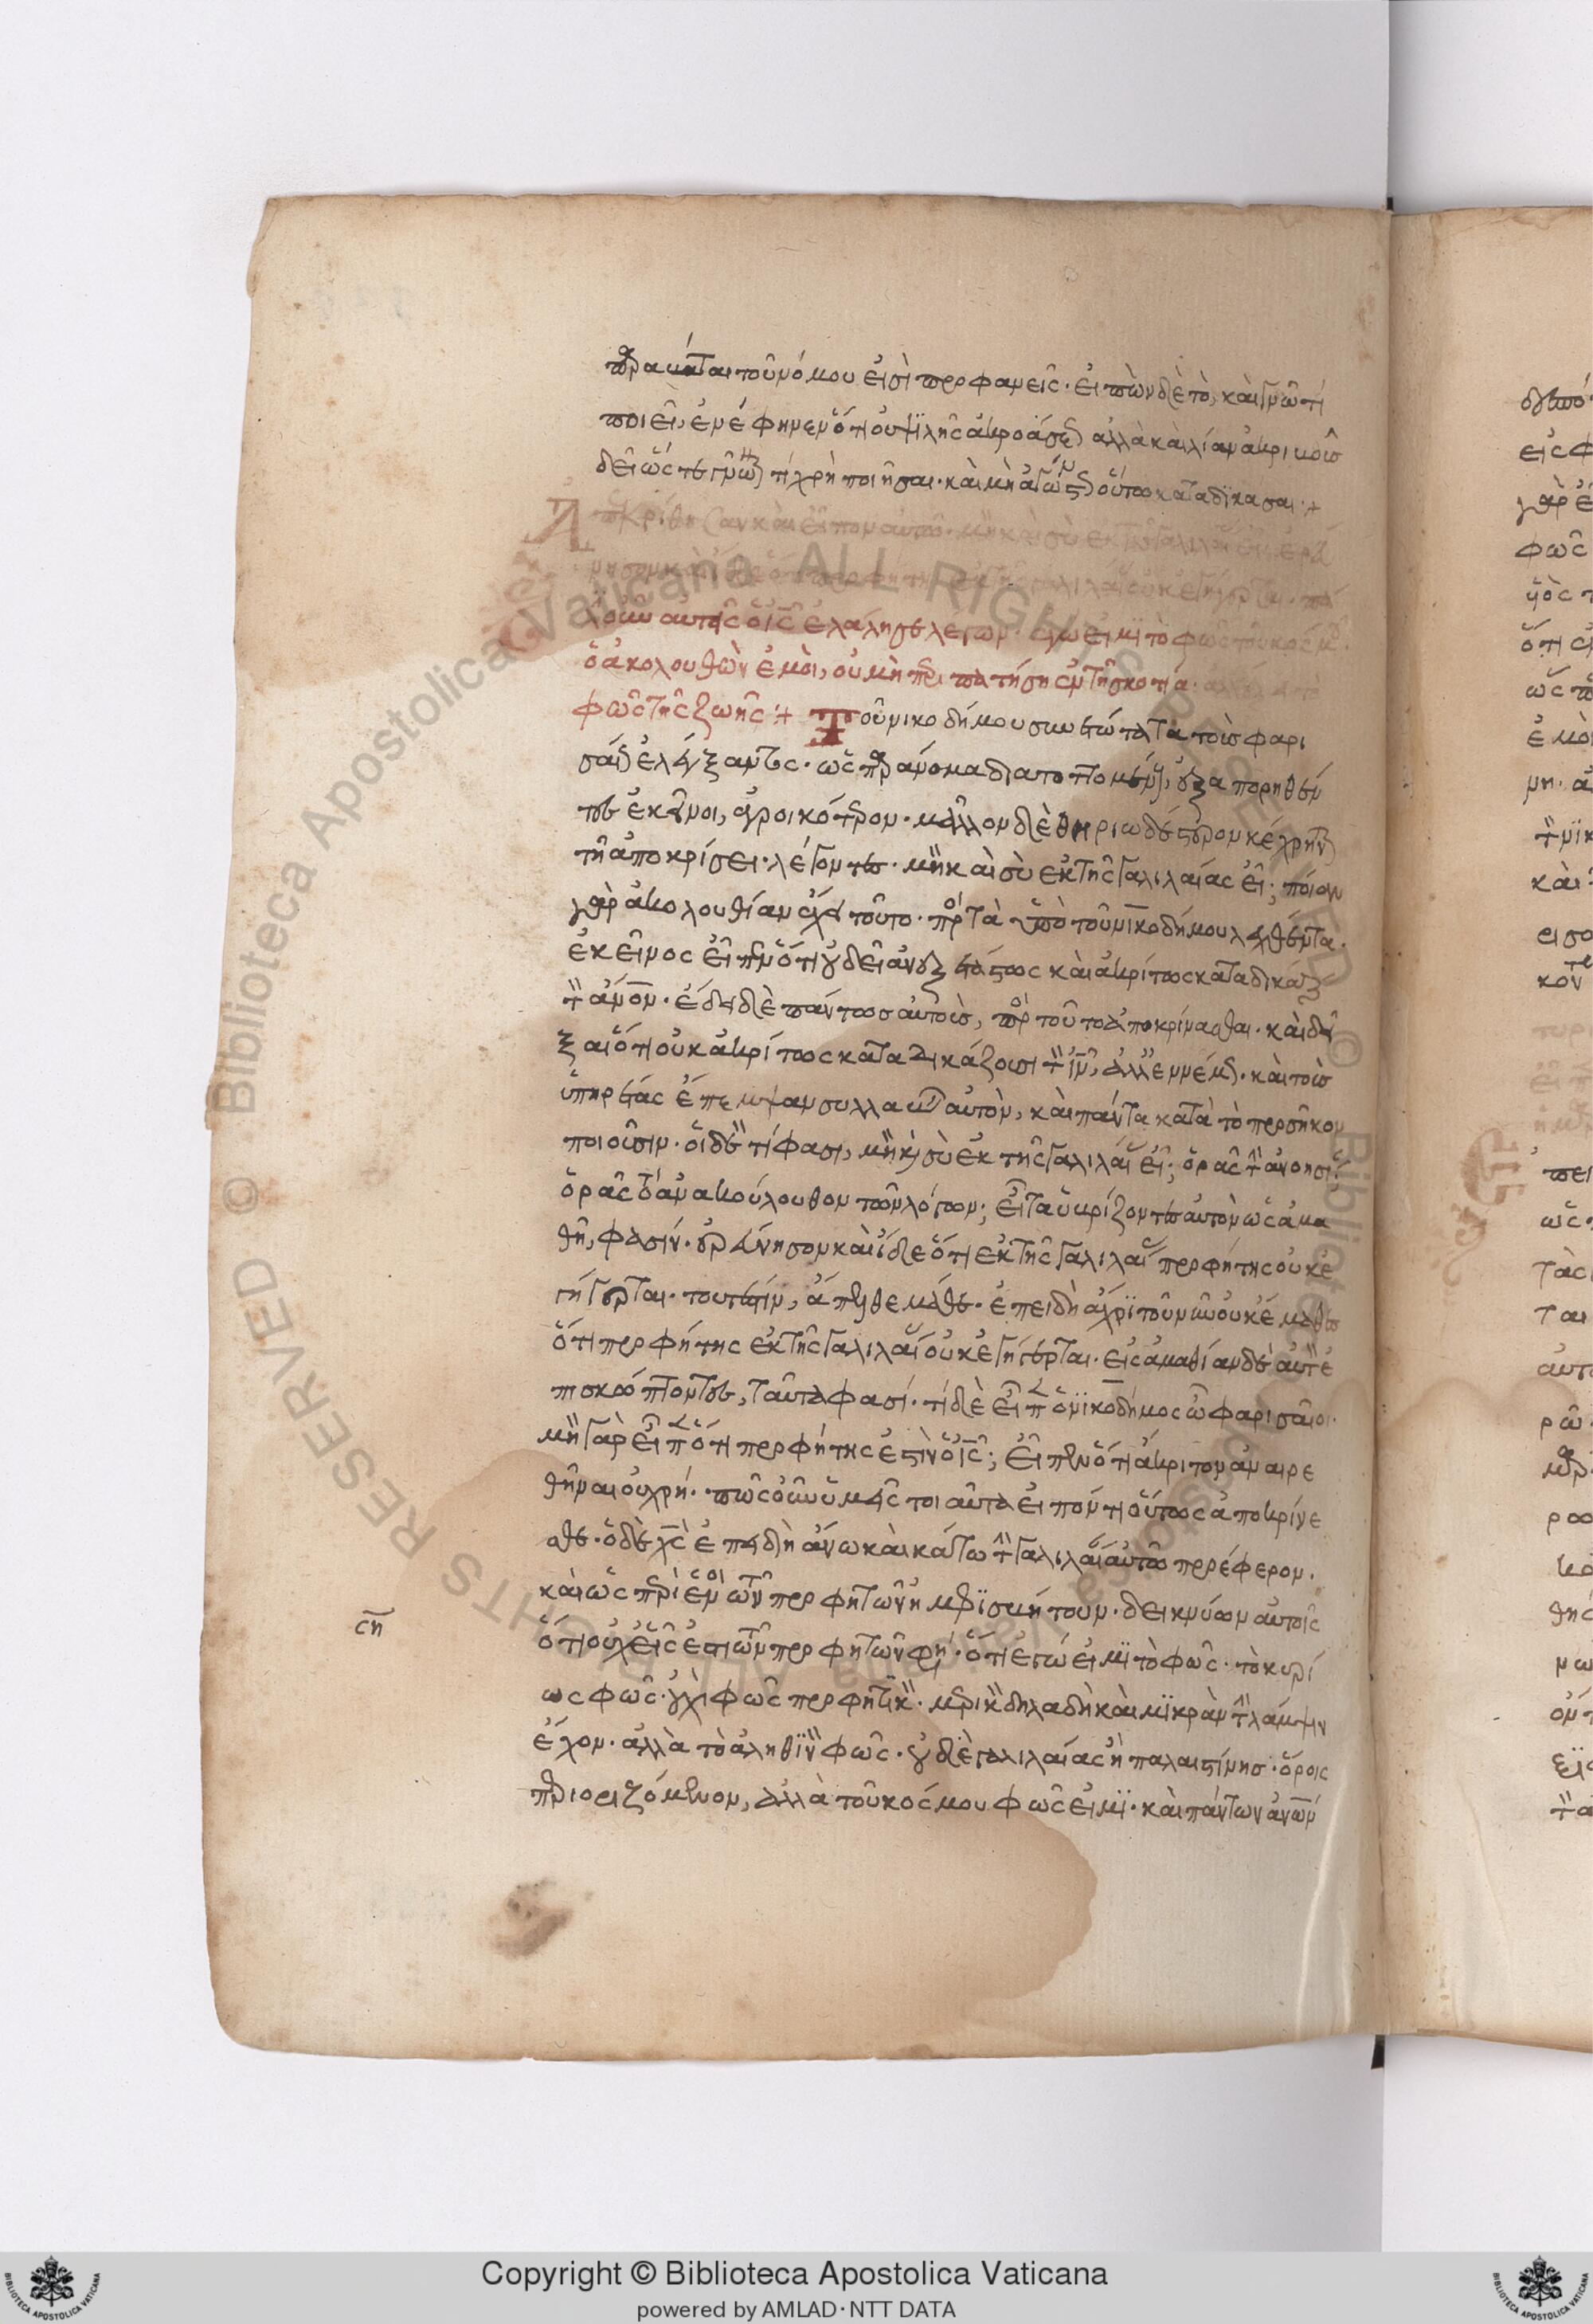 παραβάται τοῦ νόμου εἰσὶ προφανεῖς· εἰπὼν δὲ τὸ, καὶ γνῶ τί
ποιεῖ, ἐνέφηνεν ὅτι οὐ ψιλῆς ἀκροάσεως ἀλλὰ καὶ λίαν ἀκριβοῦς
δεῖ ὥστε γνῶναι τί χρὴ ποιῆσαι· καὶ μὴ ἁπλῶς οὕτω καταδικάσαι
Ἀπεκρίθησαν καὶ εἶπον αὐτῷ· μὴ καὶ σὺ ἐκ τῆς Γαλιλαίας εἶ; ἐρεύ
νησον καὶ ἴδε ὅτι προφήτης ἐκ τῆς Γαλιλαίας οὐκ ἐγήγερται· πά
λιν οὖν αὐτοῖς ὁ ις ἐλάλησε λέγων· ἐγώ εἰμι τὸ φῶς τοῦ κόσμου·
ὁ ἀκολουθῶν ἐμοὶ, οὐ μὴ περιπατήσῃ ἐν τῇ σκοτίᾳ
φῶς τῆς ζωῆς Τοῦ Νικοδήμου τοὺς φαρι
σαίους ἐλέγξαντος· ὡς παράνομα διαπραττομένους
ἐκεῖνοι, ἀγροικότερον· μᾶλλον δὲ θηριωδέστερον κέχρηνται
τῇ ἀποκρίσει· λέγοντες· μὴ καὶ σὺ ἐκ τῆς Γαλιλαίας εἶ; ποίαν
γὰρ ἀκολουθίαν ἔχει τοῦτο· πρὸς τὰ ὑπὸ τοῦ Νικοδήμου λεχθέντα·
ἐκεῖνος εἶπεν ὅτι οὐ δεῖ ἀνεξετάστως καὶ ἀκρίτως καταδικάζειν
τὸν ἄνον· ἔδει δὲ πάντως αὐτοὺς, πρὸς τοῦτο ἀποκρίνασθαι· καὶ δεῖ
ξαι ὅτι οὐκ ἀκρίτως καταδικάζουσι τὸν ιν, ἀλλ' καὶ τοὺς
ὑπηρέτας ἔπεμψαν συλλαβεῖν αὐτὸν, καὶ πάντα κατὰ τὸ προσῆκον
ποιοῦσιν· οἱ δὲ τί φασι, μὴ καὶ σὺ ἐκ τῆς Γαλιλαίας εἶ; ὁρᾷς τὴν ἀνοησίαν·
ὁρᾷς τὸ ἀνακόλουθον τῶν λόγων; εἶτα ὑβρίζοντες αὐτὸν ὡς ἀμα
θῆ, φασίν· ἐρεύνησον καὶ ἴδε ὅτι ἐκ τῆς Γαλιλαίας προφήτης οὐκ ἐ
γήγερται· τουτέστιν, ἄπελθε μάθε· ἐπειδὴ ἄχρι τοῦ νῦν οὐκ ἔμαθες
ὅτι προφήτης ἐκ τῆς Γαλιλαίας οὐκ ἐγήγερται· εἰς ἀμαθίαν δὲ αὐτὸν ἐ
πισκώπτοντες, ταῦτά φασι· τί δὲ εἶπεν ὁ Νικόδημος ὦ φαρισαῖοι·
μὴ γὰρ εἶπεν ὅτι προφήτης ἐστὶν ὁ ις; εἶπεν ὅτι ἄκριτον ἀναιρε
θῆναι οὐ χρή· πῶς οὖν ὑμεῖς τοιαῦτα εἰπόντι οὕτως ἀποκρίνε
σθε· ὁ δὲ χς ἐπειδὴ ἄνω καὶ κάτω τὴν Γαλιλαίαν αὐτῷ προέφερον·
καὶ ὡς περὶ ἑνὸς τῶν προφητῶν ἠμφισβήτουν· δεικνύων αὐτοῖς
ὅτι οὐχ εἷς ἐστι τῶν προφητῶν φησὶ· ὅτι ἐγώ εἰμι τὸ φῶς· τὸ κυρί
ως φῶς· οὐχὶ φῶς προφητικὸν· μερικὸν δηλαδὴ καὶ μικρὰν τὴν λάμψιν
ἔχον· ἀλλὰ τὸ ἀληθινὸν φῶς· οὐδὲ Γαλιλαίας ἢ παλαιστίνης ὅροις
περιοριζόμενον, ἀλλὰ τοῦ κόσμου φῶς εἰμι· καὶ πάντων ἀνων
ση
Copyright © Biblioteca Apostolica Vaticana
powered by AMLAD·NTT DATA